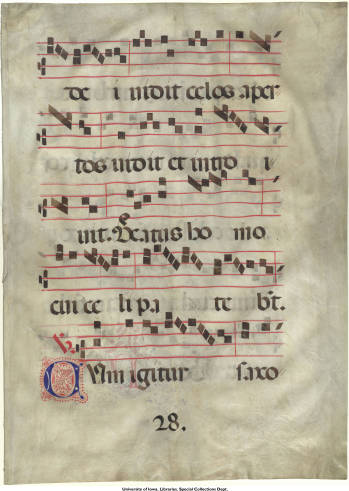 de i uidit celos aper
tos uidit et intro i
uit. Beatus ho mo
cui ce li pa te bt̄.
℣.
CVm igitur saxo
28.
University of Iowa, Libraries, Special Collections Dept.